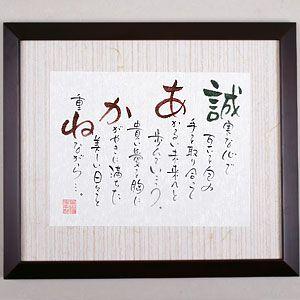 誠実な心で
手を取り合って
あかるい未来へと
歩んでいこう。
貴い夢を胸に
かがやきに満ちた
美しい日々を
重ねながら…。